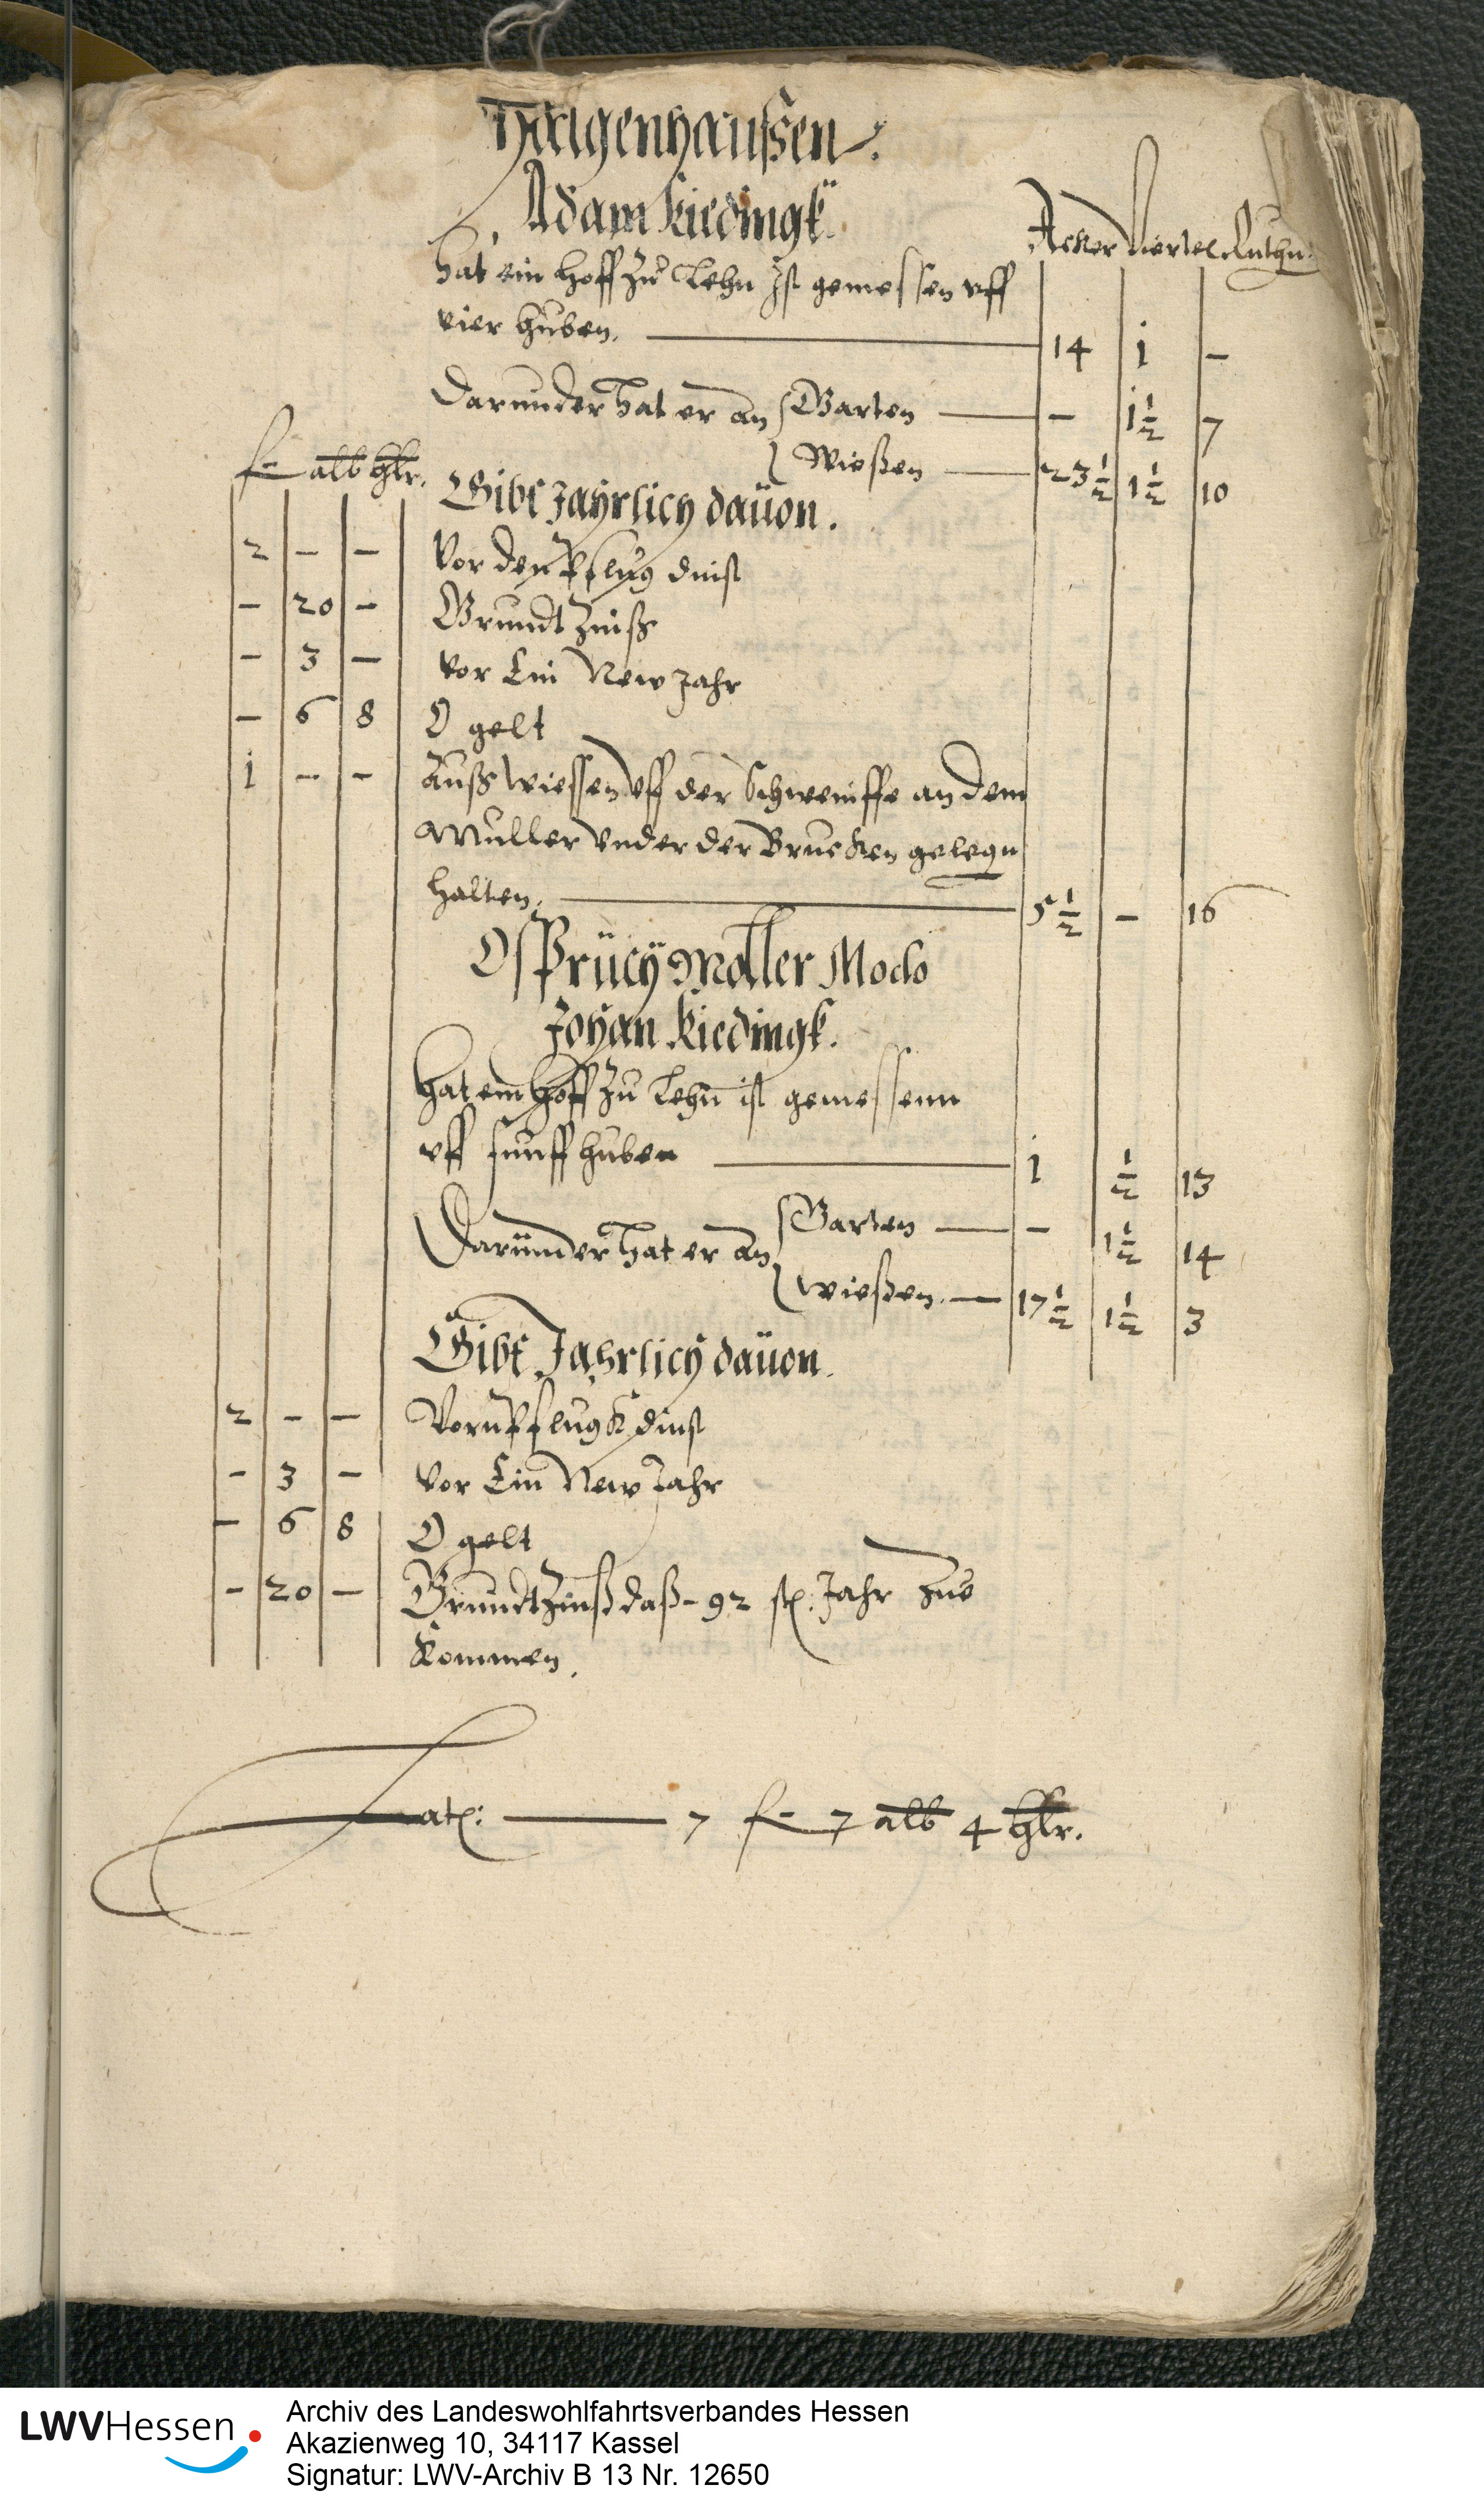 Halgenhaußen.
Adam Riedingk
Acker Viertel Ruthn.
hat ein hoff zu Lehn Ist gemessen vff
vier huben. 14 i –
Darunder hat er an Garten – 1½ 7
Wießen 23½ 1½ 10
f– alb hlr.
Gibt Jahrlich dauon.
2 – – Vor den Pflug dinst
– 20 – Grundt Zinß
– 3 – Vor Ein New Jahr
– 6 8 O gelt
i – – Auß Wiessen vff der Schweniffe an dem
Muller vnder der Brucken gelegn
halten. 5½ – 16
Möller Modo
Johan Riedingk.
hat ein hoff zu Lehn ist gemessenn
vff funff huben i ½ 13
Darunder hat er an Garten – 1½ 14
Wießen. 17½ 1½ 3
Gibt Jahrlich dauon.
2 – – Vorn Pflugk dinst
– 3 – Vor Ein New Jahr
– 6 8 O gelt
– 20 – Grundt Zinß daß 92 Jahr zue
Kommen.
Lat: 7 f– 7 alb 4 hlr.
LWVHessen
Archiv des Landeswohlfahrtsverbandes Hessen
Akazienweg 10, 34117 Kassel
Signatur: LWV-Archiv B 13 Nr. 12650